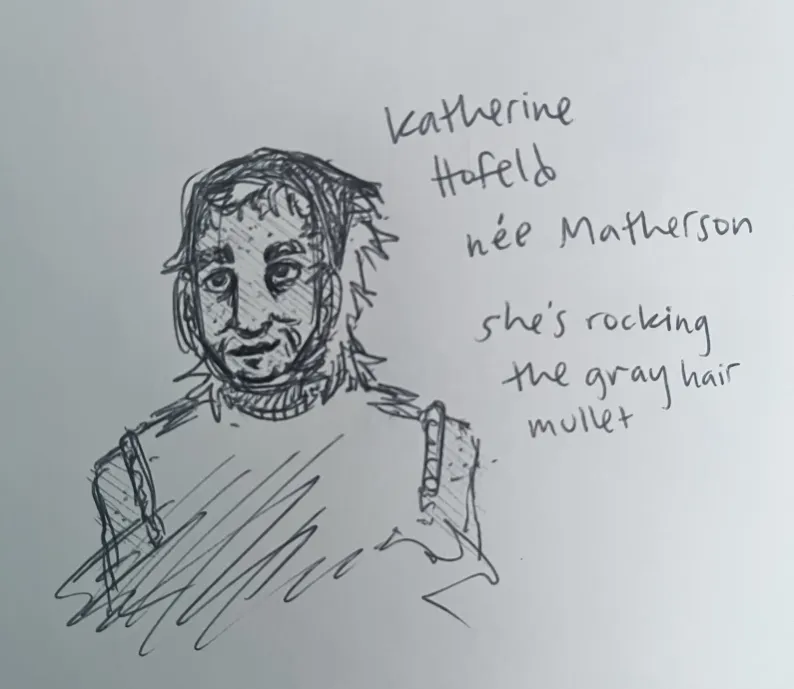 Katherine
Hofeld
née Matherson
she's rocking
the gray hair
mullet